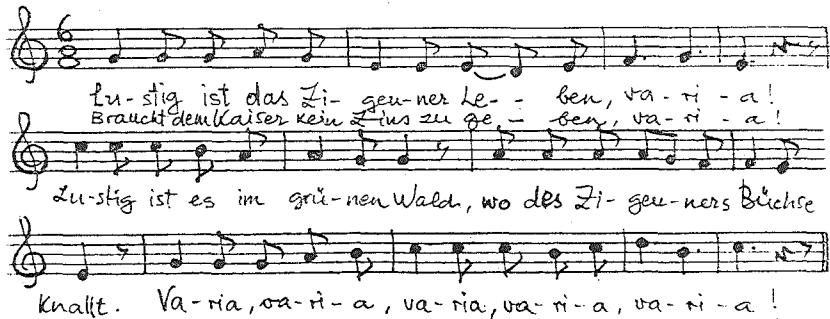 6
8
Lu-stig ist das Zi-geu-ner Le- - ben, va-ri-a!
Braucht dem Kaiser kein Zins zu ge- - ben, va-ri-a!
Lu-stig ist es im grü-nen Wald, wo des Zi-geu-ners Büchse
Knallt. Va-ria, va-ri-a, va-ria, va-ri-a, va-ri-a!